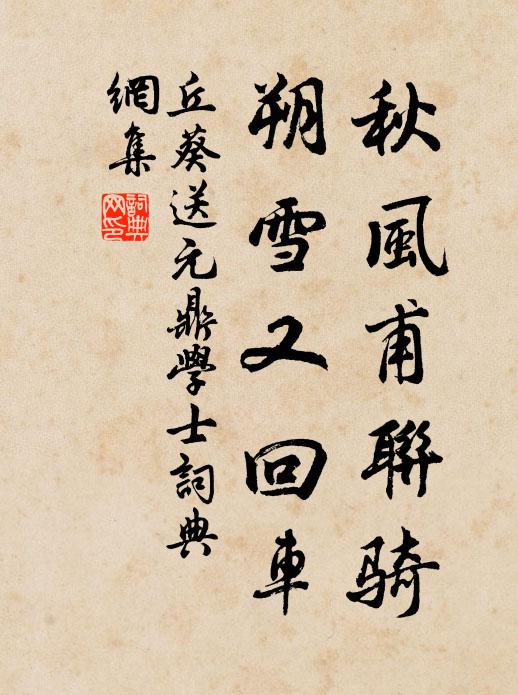 秋風甫聯骑
朔雪又回車
丘葵送元鼎學士詞典
網集
詞典
网印